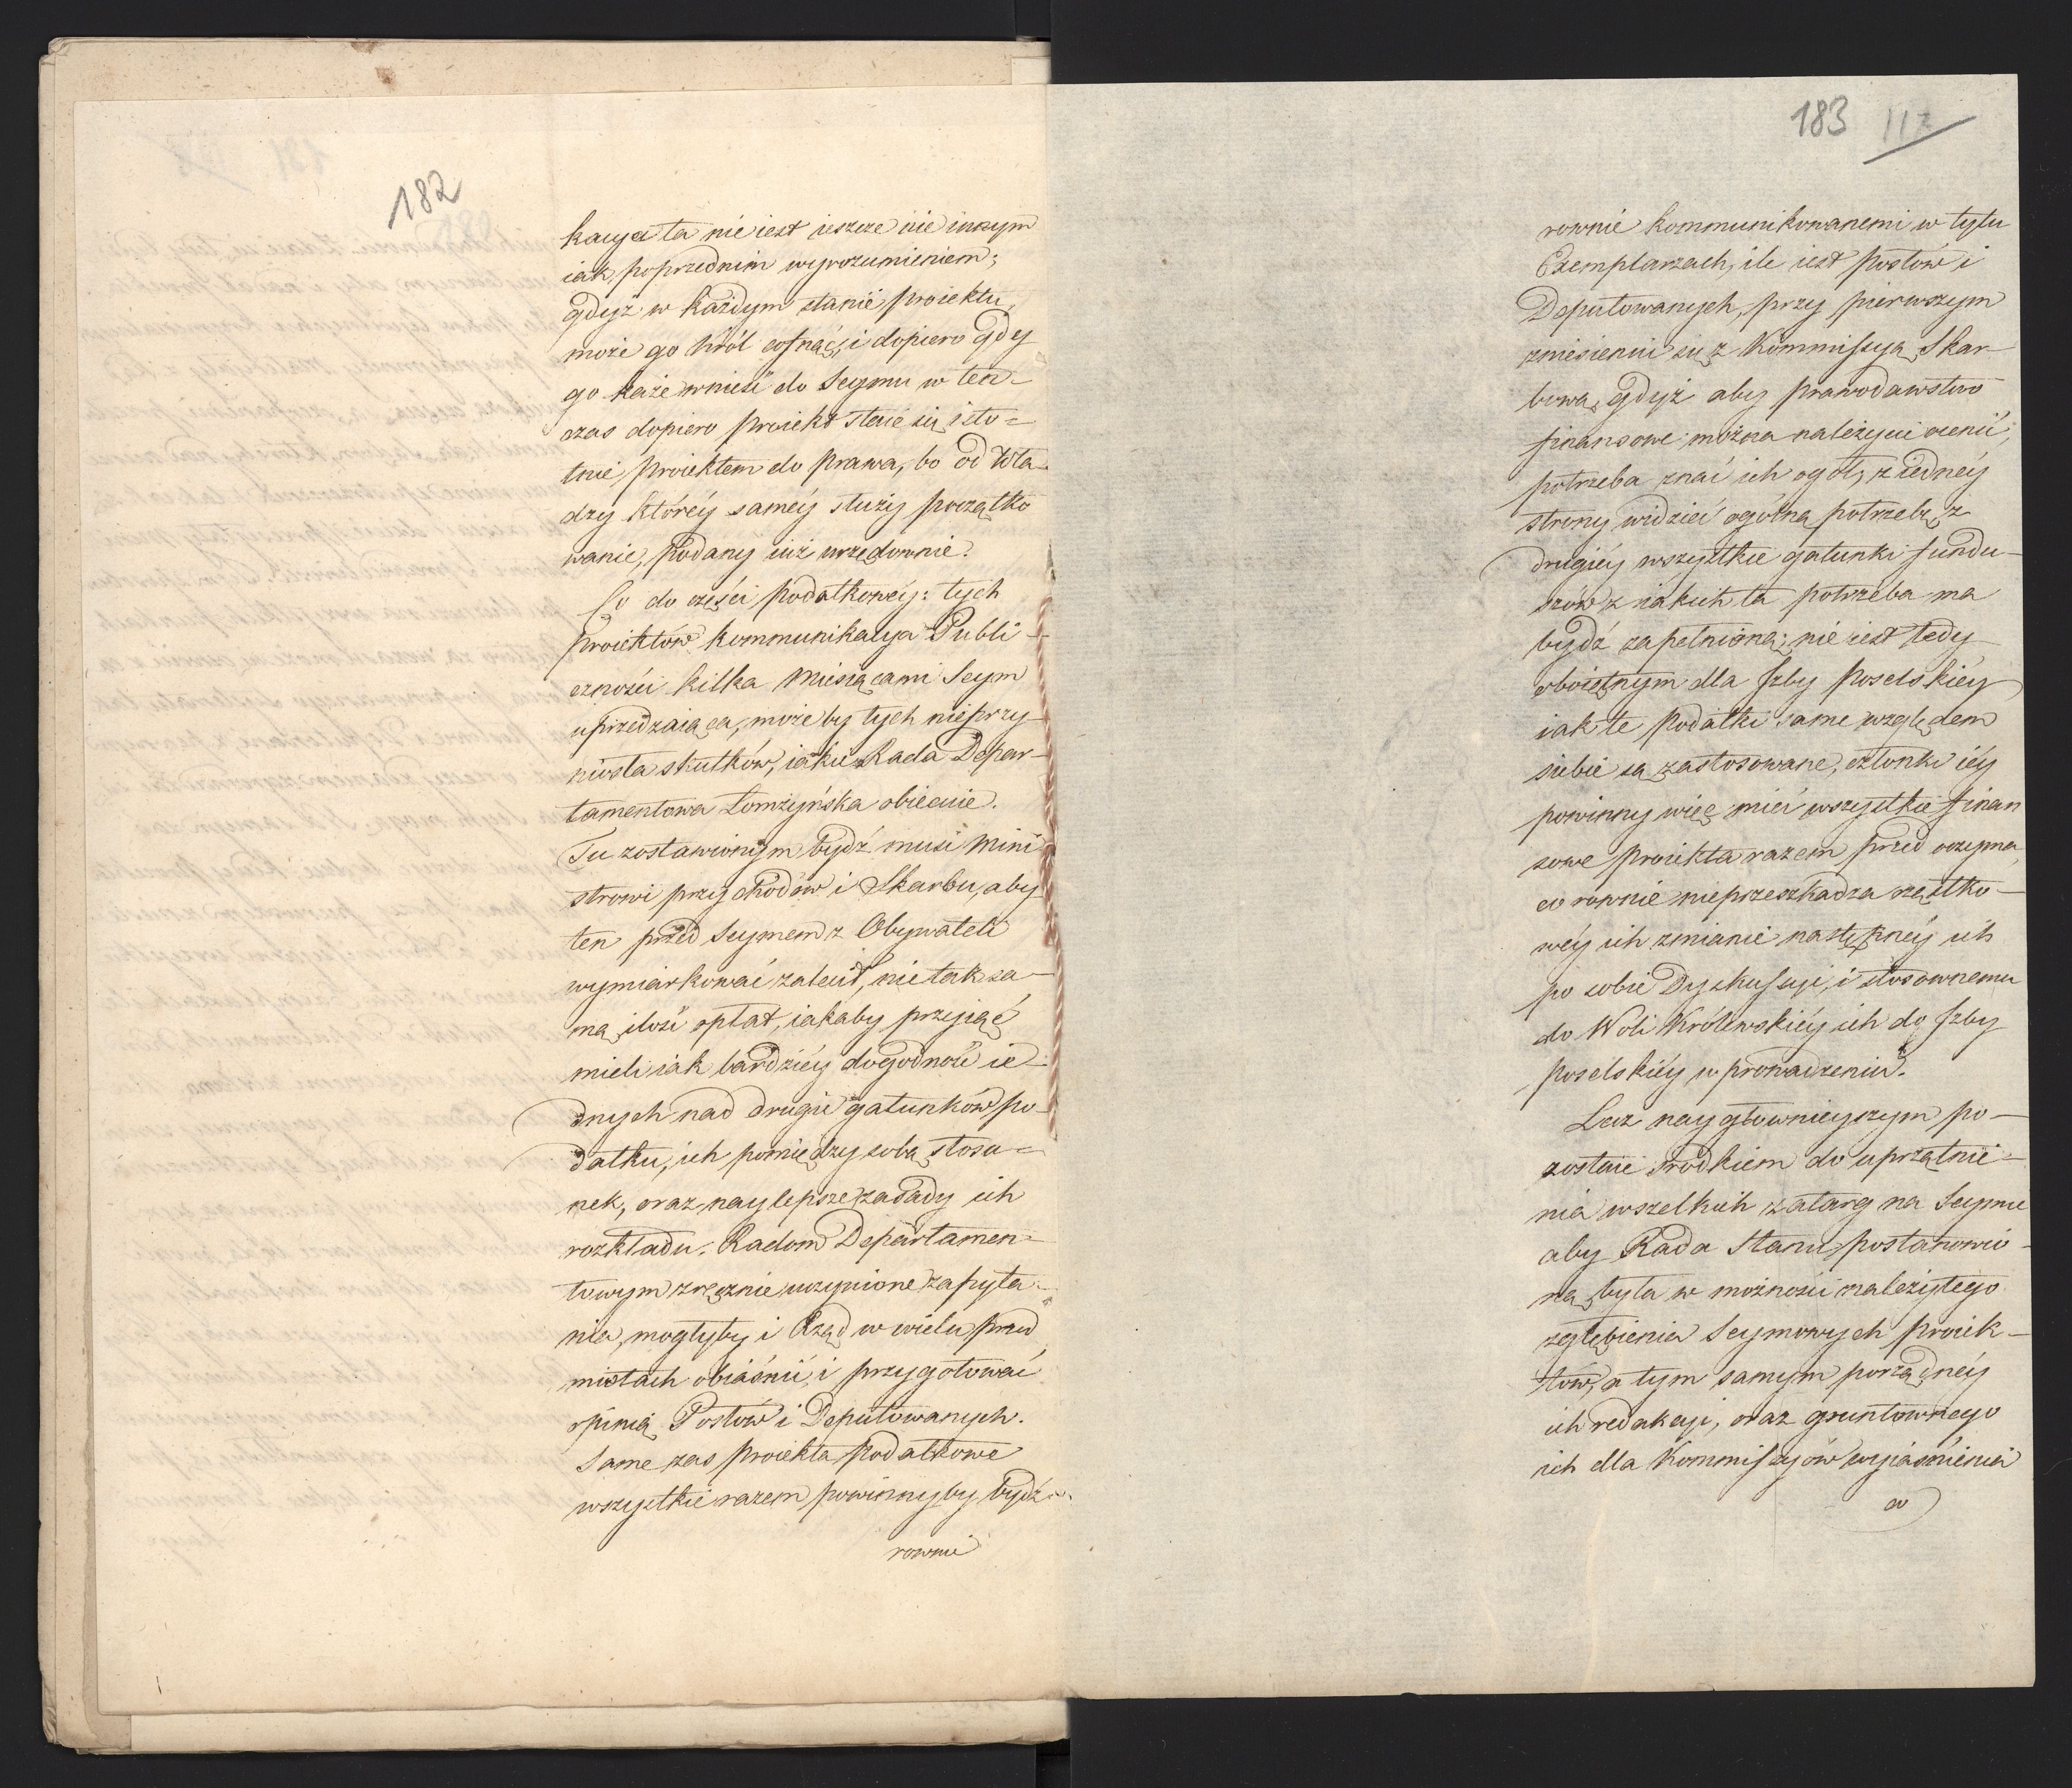 182
kacya ta nie iest ieszcze nie innym
iak poprzednim wyrozumieniem;
gdyż w każdym stanie proiektu,
może go Król cofnąć, i dopiero gdy
go każe wnieść do Seymu w ten=
czas dopiero proiekt staie się isto=
tnie proiektem do prawa, bo od Wła-
dzy któréy saméy służy początko
wanie, podany iuż urzędownie.
Co do części podatkowéy: tych
proiektów kommunikacya Publi-
czności kilka miesiącami Seym
uprzedzaiąca, możeby tych nieprzy-
niosła skutków, iakie Rada Depar-
tamentowa Łomżyńska obiecuie.
Tu zostawionym bydź musi Mini
strowi przychodów i Skarbu, aby
ten przed Seymem z Obywateli
wymiarkować zalecił, nie tak sa-
mą ilość opłat, iakąby przyiąć
mieli iak bardziéy dogodność ie-
dnych nad drugie gatunków po-
datku, ich pomiędzy sobą stosu=
nek, oraz naylepsze zasady ich
rozkładu. Radom Departamen=
towym zręcznie uczynione zapyta-
nia, mogłyby i Rząd w wielu przed
miotach obiaśnić, i przygotować
opinią Posłów i Deputowanych.
Same zas proiekta podatkowe
wszystkie razem powinnyby bydź
rownie
183 117
rownie kommunikowanemi w tylu
Exemplarzach, ile iest posłów i
Deputowanych, przy pierwszym
zniesieniu się z Kommissyą Skar-
bową, gdyż aby prawodawstwo
finansowe można należycie ocenić,
potrzeba znać ich ogół, z iednéy
strony widzieć ogólną potrzebę, z
drugiéy wszystkie gatunki fundu-
szów z iakich ta potrzeba ma
bydź zapełnioną; nie iest tedy
oboiętnym dla Izby poselskiéy
iak te podatki same względem
siebie są zastosowane, członki iéy
powinny więc mieć wszystkie finan
sowe proiekta razem przed oczyma,
co rownie nieprzeszkadza cząstko-
wéy ich zmianie następnéy ich
po sobie Dyskussyi, i stosownemu
do Woli Królewskiéy ich do Izby
poselskiéy wprowadzeniu.
Lecz naygłownieyszym po-
zostaie srodkiem do uprzątnie-
nia wszelkich zatarg na Seymie
aby Rada Stanu postanowio-
ną była w możności należytego
zgłębienia Seymowych proiek-
tów, a tym samym porządnéy
ich redakcyi, oraz gruntownego
ich dla Kommissyów wyiaśnienia
co